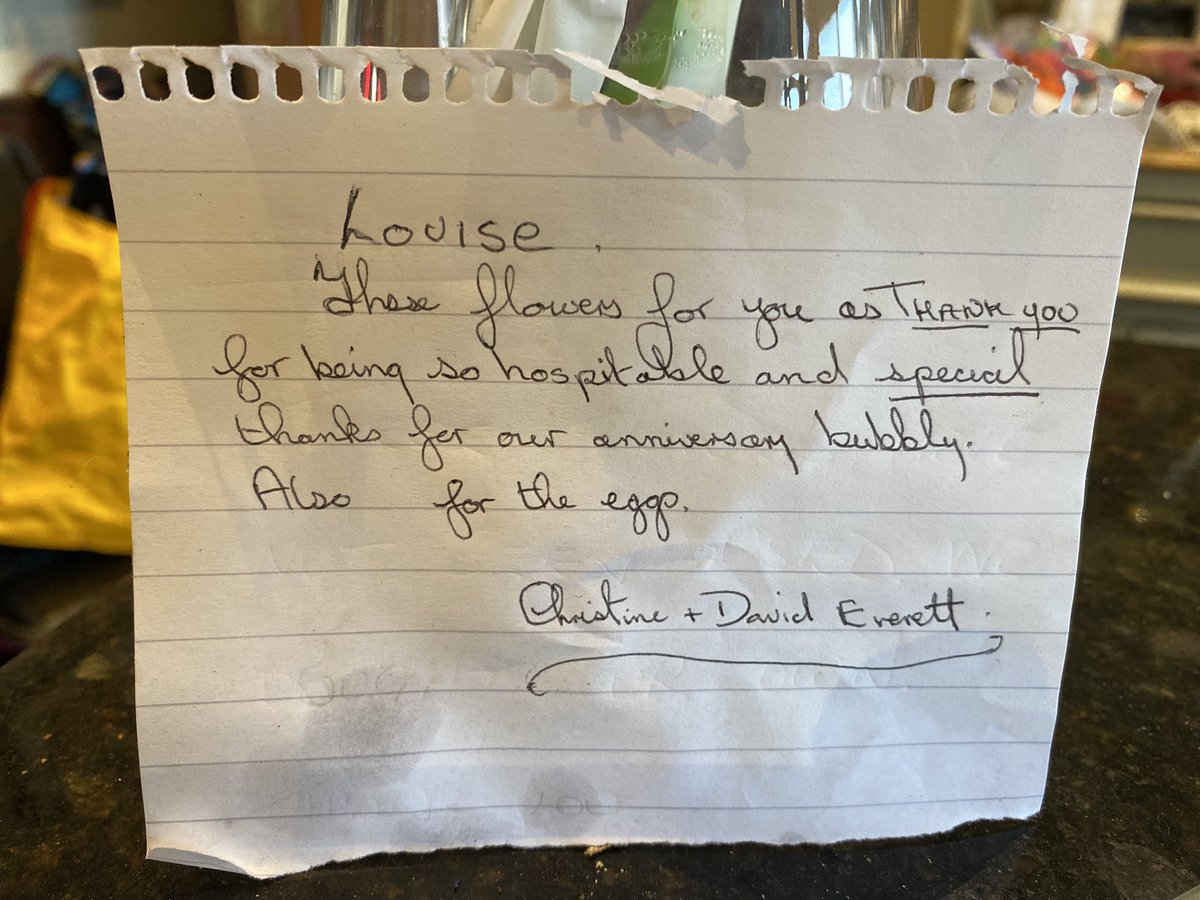 Louise.
These flowers for you as THANK YOU
for being so hospitable and special
thanks for our anniversary bubbly.
Also for the eggs.
Christine + David Everett.